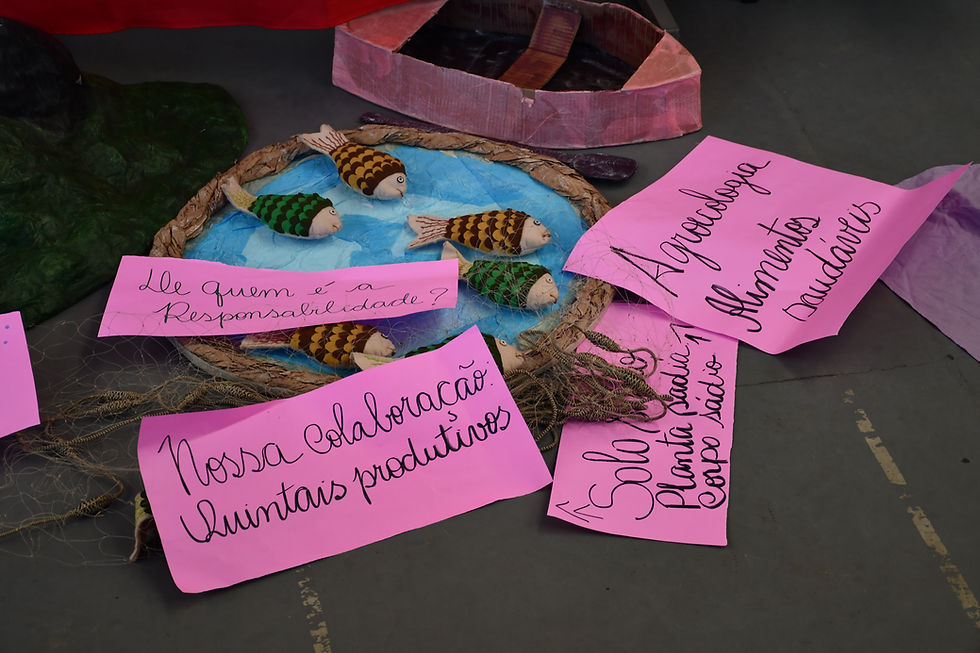 De quem é a
Responsabilidade?
Agroecologia
Alimentos
saudáveis
Nossa Colaboração:
Quintais produtivos
Solo
Planta sádia
Corpo sádio